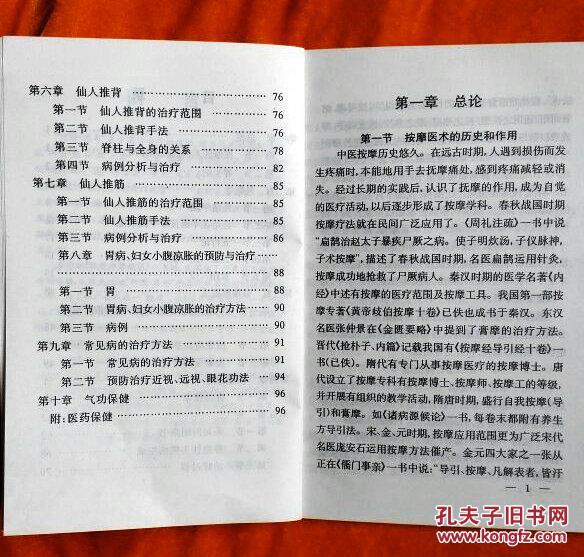 第六章 仙人推背 …………………… 76
第一节 仙人推背的治疗范围 …………… 76
第二节 仙人推背手法 …………………… 76
第三节 脊柱与全身的关系 ……………… 78
第四节 病例分析与治疗 ………………… 82
第七章 仙人推筋 …………………… 85
第一节 仙人推筋的治疗范围 …………… 85
第二节 仙人推筋手法 …………………… 85
第三节 病例分析与治疗 ………………… 86
第八章 胃病、妇女小腹凉胀的预防与治疗 ……
…………………… 88
第一节 胃 …………………… 88
第二节 胃病、妇女小腹凉胀的治疗方法 … 90
第三节 病例 …………………… 90
第九章 常见病的治疗方法 …………… 91
第一节 常见病的治疗方法 …………… 91
第二节 预防治疗近视、远视、眼花功法 …… 94
第十章 气功保健 …………………… 96
附:医药保健 …………………… 96
第一章 总论
第一节 按摩医术的历史和作用
中医按摩历史悠久。在远古时期,人遇到损伤而发
生疼痛时,本能地用手去抚摩痛处,感到疼痛减轻或消
失。经过长期的实践后,认识了抚摩的作用,成为自觉
的医疗活动,以后逐步形成了按摩学科。春秋战国时期
按摩疗法就在民间广泛应用了。《周礼注疏》一书中说
“扁鹊治赵太子暴疾尸厥之病。使子明炊汤,子仪脉神,
子术按摩”,描述了春秋战国时期,名医扁鹊运用针灸、
按摩成功地抢救了尸厥病人。秦汉时期的医学名著《内
经》中述有按摩的医疗范围及按摩工具。我国第一部按
摩专著《黄帝歧伯按摩十卷》已佚也成书于秦汉。东汉
名医张仲景在《金匮要略》中提到了膏摩的治疗方法。
晋代《抢朴子、内篇》记载我国有《按摩经导引经十卷》一
书(已佚)。隋代有专门从事按摩医疗的按摩博士。唐
代设立了按摩专科有按摩博士、按摩师、按摩工的等级,
并开展有组织的教学活动,隋唐时期,盛行自我按摩(导
引)和膏摩。如《诸病源候论》一书,每卷末都附有养生
方导引法。宋、金、元时期,按摩应用范围更为广泛宋代
名医庞安石运用按摩方法催产。金元四大家之一张从
正在《儒门事亲》一书中说:“导引、按摩、凡解表者,皆汗
— 1 —
孔夫子旧书网
KONGFZ.COM